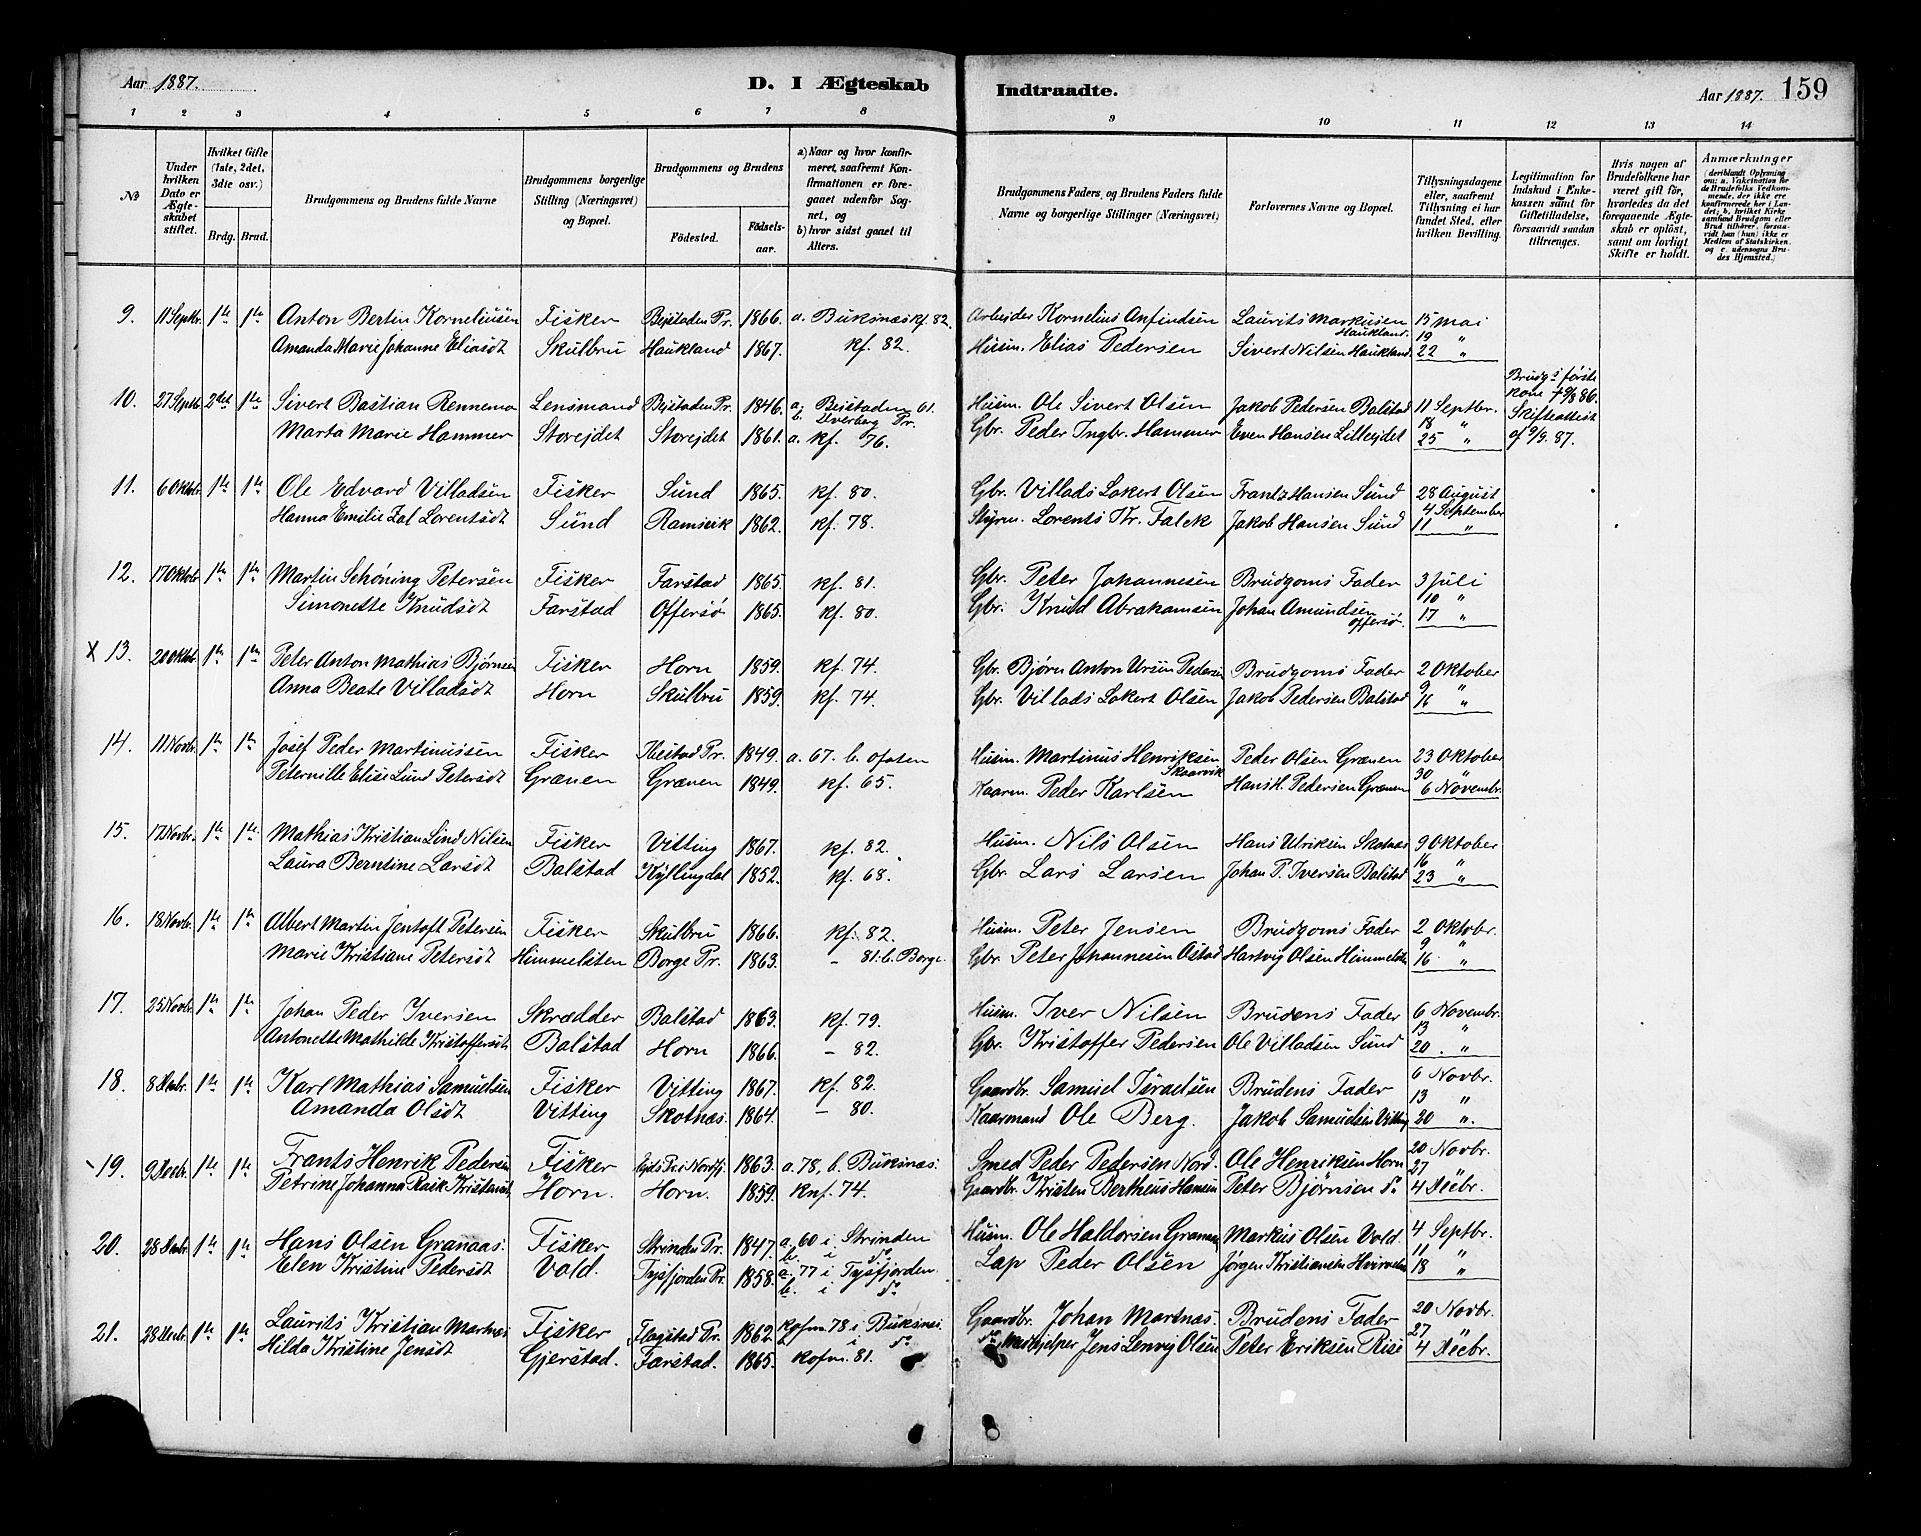 Aar 1887.
D. I Ægteskab
Indtraadte.
Aar 1887.
159
1 2 3 4 5 6 7 8 9 10 11 12 13 14
№
Under hvilken Dato er Ægteskabet stiftet.
Hvilket Gifte (1ste, 2det, 3die osv.)
Brdg. Brud.
Brudgommens og Brudens fulde Navne
Brudgommens borgerlige Stilling (Næringsvei) og Bopæl.
Brudgommens og Brudens
Fødested. Fødselsaar.
a) Naar og hvor konfirmeret, saafremt Konfirmationen er foregaaet udenfor Sognet, og
b) hvor sidst gaaet til Alters.
Brudgommens Faders og Brudens Faders fulde Navne og borgerlige Stillinger (Næringsvei)
Forlovernes Navne og Bopæl.
Tillysningsdagene eller, saafremt Tillysning ei har fundet Sted, efter hvilken Bevilling.
Legitimation for Indskud i Enkekassen samt for Giftetilladelse, forsaavidt saadan tiltrenges.
Hvis nogen af Brudefolkene har været gift før, hvorledes da det foregaaende Ægteskab er opløst, samt om lovligt Skifte er holdt.
Anmærkninger (deriblandt Oplysning om: a. Vakcination for de Brudefolks Vedkommende, der ikke ere konfirmerede her i Landet; b. hvilket Kirkesamfund Brudgom eller Brud tilhører, forsaavidt han (hun) ikke er Medlem af Statskirken, og c. udensogns Brudes Hjemsted.)
9. 11 Septbr. 1ste 1ste Anton Bertin Korneliusen Fisker Bejstaden Pr. 1866. a. Buksnæs kf. 82. Arbejder Kornelius Anfindsen Laurits Markusen Haukland. 15 Mai
Amanda Marie Johanne Eliasdt Skulbru Haukland 1867. kf. 82. Husm. Elias Pedersen Sivert Nilsen Haukland. 19 " 22 "
10. 27 Septbr. 2det 1ste Sivert Bastian Rennemo Lensmand Bejstaden Pr. 1846. a. Bejstaden 61. b. Dverberg Pr. Husm. Ole Sivert Olsen Jakob Pedersen Balstad 11 Septbr. Brudg.s første kone † 9/8 86. Skifteattest af 9/9. 87.
Marta Marie Hammer Storejdet Storejdet 1861. a. kf. 76. Gbr. Peder Ingbr. Hammer Even Hansen Lillejdet 18 " 25 "
11. 6 Oktbr. 1ste 1ste Ole Edvard Villadsen Fisker Sund 1865. kf. 80. Gbr. Villads Lakert Olsen Frantz Hansen Sund 28 August
Hanna Emilie Zal Lorentsdt Sund Ramsvik 1862. kf. 78. Styrm. Lorents Kr. Falck Jakob Hansen Sund 4 September 11 "
12. 17 Oktbr. 1ste 1ste Martin Schøning Petersen Fisker Farstad 1865. kf. 81. Gbr. Peter Johannesen Brudgoms Fader 3 Juli
Simonette Knudsdt Farstad Offersø 1865. kf. 80. Gbr. Knud Abrahamsen Johan Amundsen Offersø. 10 " 17 "
X 13. 20 Oktbr. 1ste 1ste Peter Anton Mathias Bjørnsen Fisker Horn 1859. kf. 74. Gbr. Bjørn Anton Ursin Pedersen Brudgoms Fader 2 Oktober
Anna Beate Villadsdt Horn Skulbru 1859. kf. 74. Gbr. Villads Lakert Olsen Jakob Pedersen Balstad 9 " 16 "
14. 11 Novbr. 1ste 1ste Josef Peder Martinussen Fisker Ibestad Pr. 1849. a. 67. b. Ofoten Husm. Martinus Henriksen Skaarvik Peder Olsen Grænen 23 Oktober
Peternille Elise Lund Petersdt Grænen Grænen 1849. kf. 65. Kaarm. Peder Karlsen Hans H. Pedersen Grænen 30 " 6 Novembr.
15. 17 Novbr. 1ste 1ste Mathias Kristian Lind Nilsen Fisker Vitting 1867. kf. 82. Husm. Nils Olsen Hans Ulriksen Skotnæs 9 Oktober
Laura Berntine Larsdt Balstad Kyllingdal 1852. kf. 68. Gbr. Lars Larsen Johan P. Iversen Balstad 16 " 23 "
16. 18 Novbr. 1ste 1ste Albert Martin Jentoft Petersen Fisker Skulbru 1866. kf. 82. Husm. Peter Jensen Brudgoms Fader 2 Oktober.
Marie Kristiane Petersdt Himmelsten Borge Pr. 1863. - 81. b. Borge. Gbr. Peter Johannesen Ostad Hartvig Olsen Heimmelsten 9 " 16 "
17. 25 Novbr. 1ste 1ste Johan Peder Iversen Skrædder Balstad 1863. kf. 79. Husm. Iver Nilsen Brudens Fader 6 Novembr.
Antonette Mathilde Kristoffersdt Balstad Horn 1866. - 82. Gbr. Kristoffer Pedersen Ole Villadsen Sund 13 " 20 "
18. 8 Decbr. 1ste 1ste Karl Mathias Samuelsen Fisker Vitting 1867. kf. 82. Gaardbr. Samuel Israelsen Brudens Fader 6 Novbr.
Amanda Olsdt Vitting Skotnæs. 1864. - 80. Kaarmand Ole Berg. Jakob Samuelsen Vitting 13 " 20 ".
19. 9 Decbr. 1ste 1ste Frants Henrik Pedersen Fisker Ejds Pr. i Nordfj. 1863. a. 78, b. Buksnæs. Smed Peder Pedersen Nord. Ole Henriksen Horn 20 Novbr.
Petrine Johanna Rask Kristensdt Horn. Horn. 1859. Knf. 74. Gaardbr. Kristen Bertheus Hansen Peter Bjørnsen do 27 4 Decbr.
20. 28 Decbr. 1ste 1ste Hans Olsen Granaas. Fisker Strinden Pr. 1847. a. 60 i Strinden b. i do Husm. Ole Haldorsen Granaas Markus Olsen Vold. 4 Septbr.
Elen Kristine Pedersdt Vold. Tysfjorden Pr. 1858. a. 77 i Tysfjorden. b. i do Lap Peder Olsen Jørgen Kristiansen 11 18 "
21. 28 Decbr. 1ste 1ste Laurits Kristian Martnæs Fisker Flagstad Pr. 1862. Kofm. 78 i Buksnæs. do Gaardbr. Johan Martnæs. Brudens Fader 20 Novbr.
Hilda Kristine Jensdt Gjerstad. Farstad. 1865. Kofm. 81. do Medhjelper Jens Lenvig Olsen Peter Eriksen Rise 27 4 Decbr.